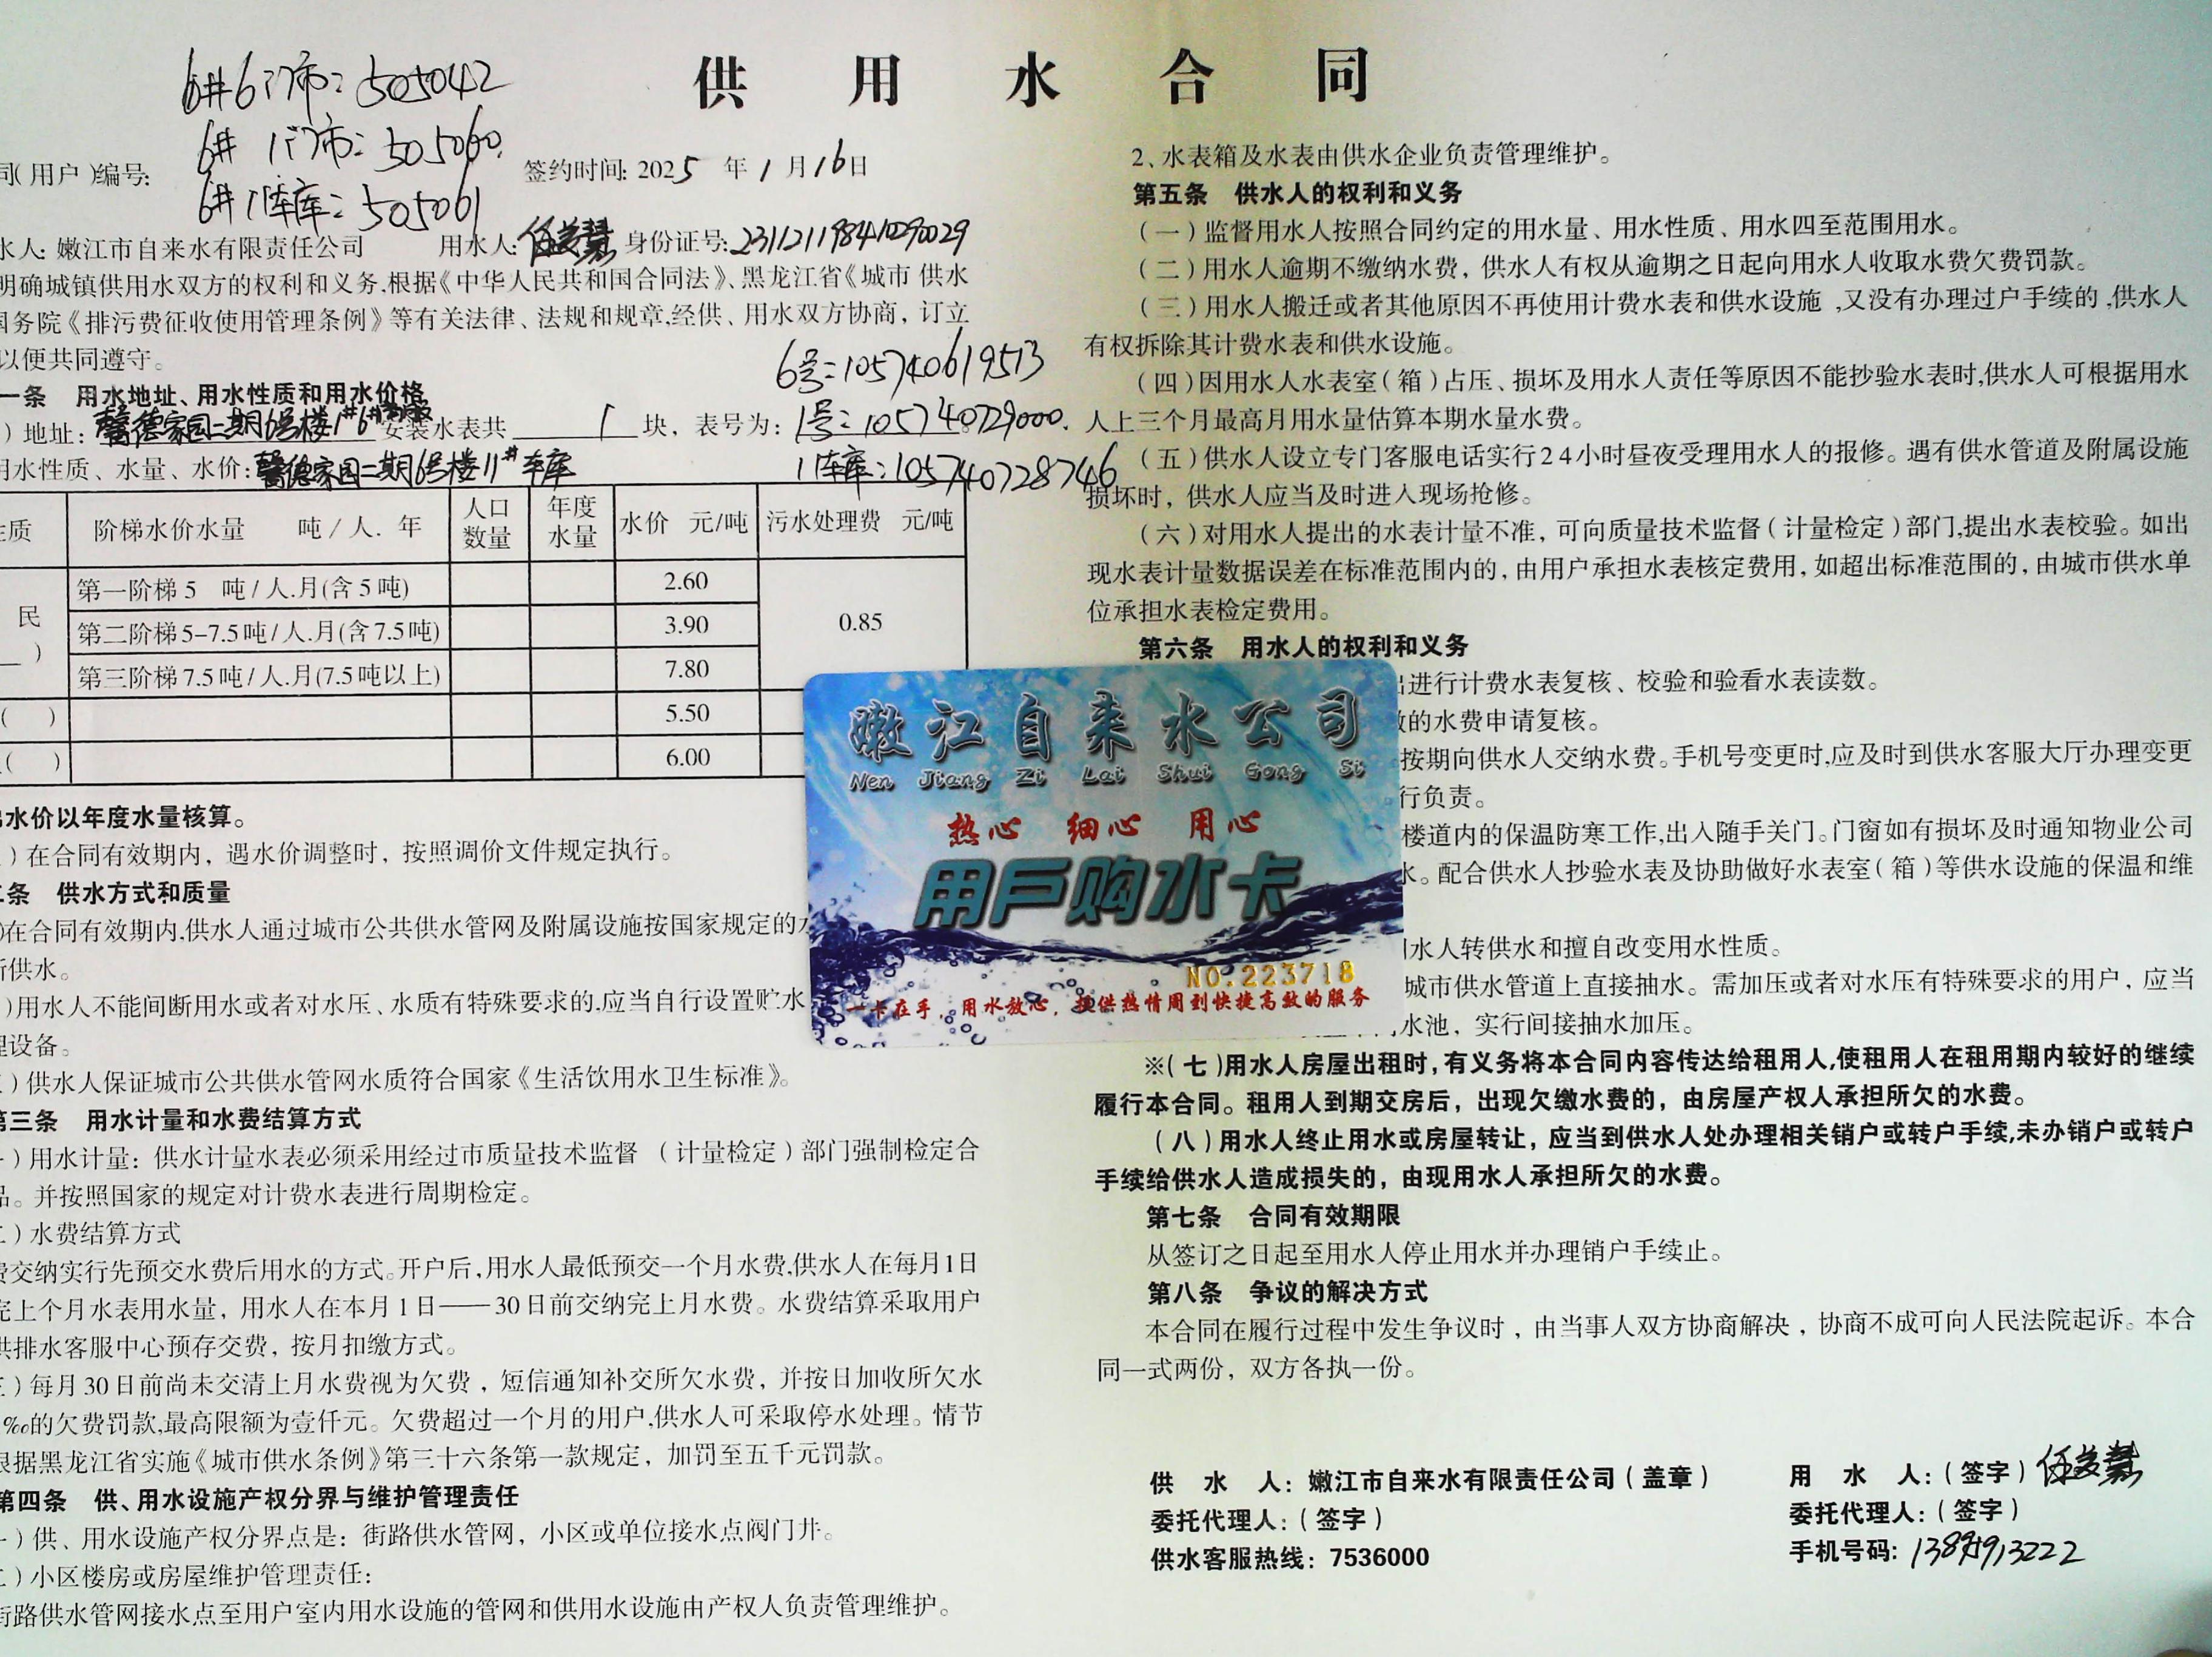 供用水合同
6#6门市：505042
6# 1门市：505060
6#11车库：505061
同(用户)编号:
签约时间: 2025年1月16日
水人: 嫩江市自来水有限责任公司 用水人: 身份证号:231121198410290029
明确城镇供用水双方的权利和义务,根据《中华人民共和国合同法》、黑龙江省《城市 供水
国务院《排污费征收使用管理条例》等有关法律、法规和规章,经供、用水双方协商，订立
以便共同遵守。
6号=105740619513
一条 用水地址、用水性质和用水价格
)地址: 馨德家园二期6号楼1#6# 安装水表共 1 块，表号为: 1号=105740729000.
用水性质、水量、水价: 馨德家园二期6号楼11#车库 11车库:105740728746
性质 阶梯水价水量 吨/人.年 人口数量 年度水量 水价 元/吨 污水处理费 元/吨
民 第一阶梯 5 吨/人.月(含5吨) 2.60 0.85
第二阶梯 5-7.5吨/人.月(含7.5吨) 3.90
第三阶梯 7.5吨/人.月(7.5吨以上) 7.80
( ) 5.50
( ) 6.00
水价以年度水量核算。
)在合同有效期内，遇水价调整时，按照调价文件规定执行。
二条 供水方式和质量
)在合同有效期内,供水人通过城市公共供水管网及附属设施按国家规定的
所供水。
)用水人不能间断用水或者对水压、水质有特殊要求的,应当自行设置贮水
理设备。
)供水人保证城市公共供水管网水质符合国家《生活饮用水卫生标准》。
第三条 用水计量和水费结算方式
)用水计量：供水计量水表必须采用经过市质量技术监督 (计量检定)部门强制检定合
品。并按照国家的规定对计费水表进行周期检定。
二)水费结算方式
费交纳实行先预交水费后用水的方式。开户后,用水人最低预交一个月水费,供水人在每月1日
完上个月水表用水量，用水人在本月1日——30日前交纳完上月水费。水费结算采取用户
供排水客服中心预存交费，按月扣缴方式。
三)每月30日前尚未交清上月水费视为欠费，短信通知补交所欠水费，并按日加收所欠水
‰的欠费罚款,最高限额为壹仟元。欠费超过一个月的用户,供水人可采取停水处理。情节
根据黑龙江省实施《城市供水条例》第三十六条第一款规定，加罚至五千元罚款。
第四条 供、用水设施产权分界与维护管理责任
一)供、用水设施产权分界点是：街路供水管网，小区或单位接水点阀门井。
二)小区楼房或房屋维护管理责任:
街路供水管网接水点至用户室内用水设施的管网和供用水设施由产权人负责管理维护。
2、水表箱及水表由供水企业负责管理维护。
第五条 供水人的权利和义务
(一)监督用水人按照合同约定的用水量、用水性质、用水四至范围用水。
(二)用水人逾期不缴纳水费，供水人有权从逾期之日起向用水人收取水费欠费罚款。
(三)用水人搬迁或者其他原因不再使用计费水表和供水设施,又没有办理过户手续的,供水人
有权拆除其计费水表和供水设施。
(四)因用水人水表室(箱)占压、损坏及用水人责任等原因不能抄验水表时,供水人可根据用水
人上三个月最高月用水量估算本期水量水费。
(五)供水人设立专门客服电话实行24小时昼夜受理用水人的报修。遇有供水管道及附属设施
损坏时，供水人应当及时进入现场抢修。
(六)对用水人提出的水表计量不准，可向质量技术监督(计量检定)部门,提出水表校验。如出
现水表计量数据误差在标准范围内的，由用户承担水表核定费用，如超出标准范围的，由城市供水单
位承担水表检定费用。
第六条 用水人的权利和义务
进行计费水表复核、校验和验看水表读数。
的水费申请复核。
按期向供水人交纳水费。手机号变更时,应及时到供水客服大厅办理变更
行负责。
楼道内的保温防寒工作,出入随手关门。门窗如有损坏及时通知物业公司
水。配合供水人抄验水表及协助做好水表室(箱)等供水设施的保温和维
用水人转供水和擅自改变用水性质。
城市供水管道上直接抽水。需加压或者对水压有特殊要求的用户，应当
水池，实行间接抽水加压。
※(七)用水人房屋出租时，有义务将本合同内容传达给租用人,使租用人在租用期内较好的继续
履行本合同。租用人到期交房后，出现欠缴水费的，由房屋产权人承担所欠的水费。
(八)用水人终止用水或房屋转让，应当到供水人处办理相关销户或转户手续,未办销户或转户
手续给供水人造成损失的，由现用水人承担所欠的水费。
第七条 合同有效期限
从签订之日起至用水人停止用水并办理销户手续止。
第八条 争议的解决方式
本合同在履行过程中发生争议时，由当事人双方协商解决，协商不成可向人民法院起诉。本合
同一式两份，双方各执一份。
供水人：嫩江市自来水有限责任公司(盖章)
委托代理人：(签字)
供水客服热线：7536000
用水人：(签字)
委托代理人：(签字)
手机号码:
嫩江自来水公司
Nen Jiang Zi Lai Shui Gong Si
热心 细心 用心
用户购水卡
NO.223718
一卡在手，用水放心，提供热情周到快捷高效的服务